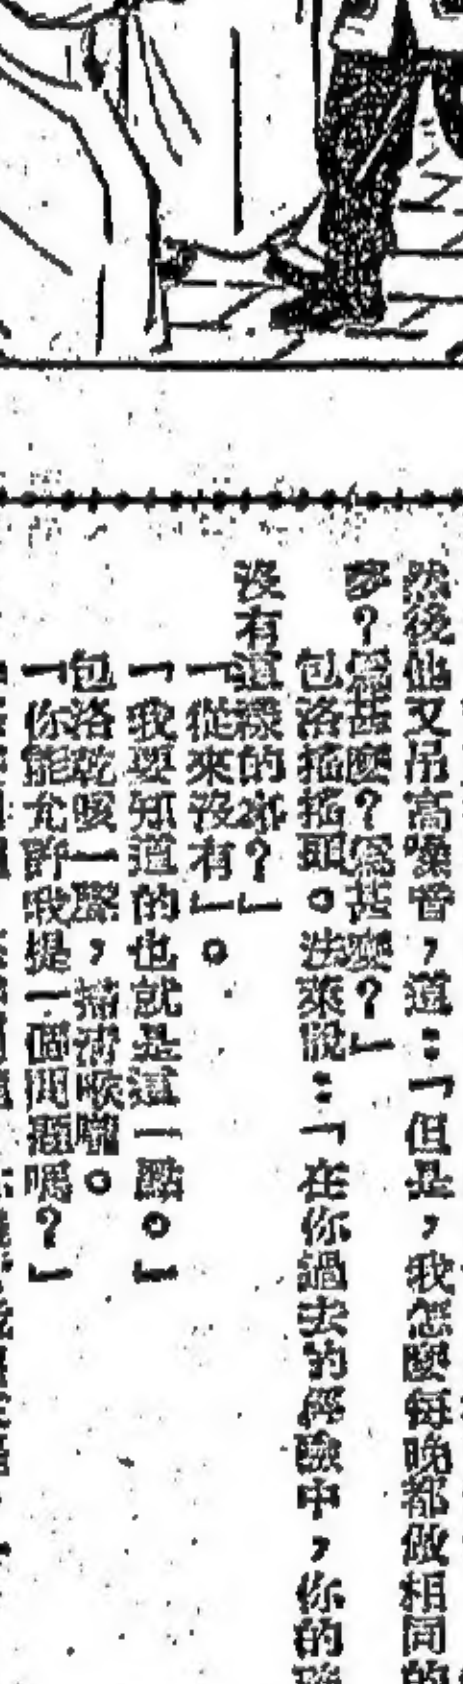 然後他又吊高嗓音，道：「但是，我怎麼每晚都做相同的
夢？爲甚麼？爲甚麼？」
包洛搖搖頭。法萊說：「在你過去的經驗中，你的
沒有這樣的事？」
「從來沒有」。
「我要知道的也就是這一點。」
包洛乾咳一聲，清清喉嚨。
「你能允許我提一個問題嗎？」